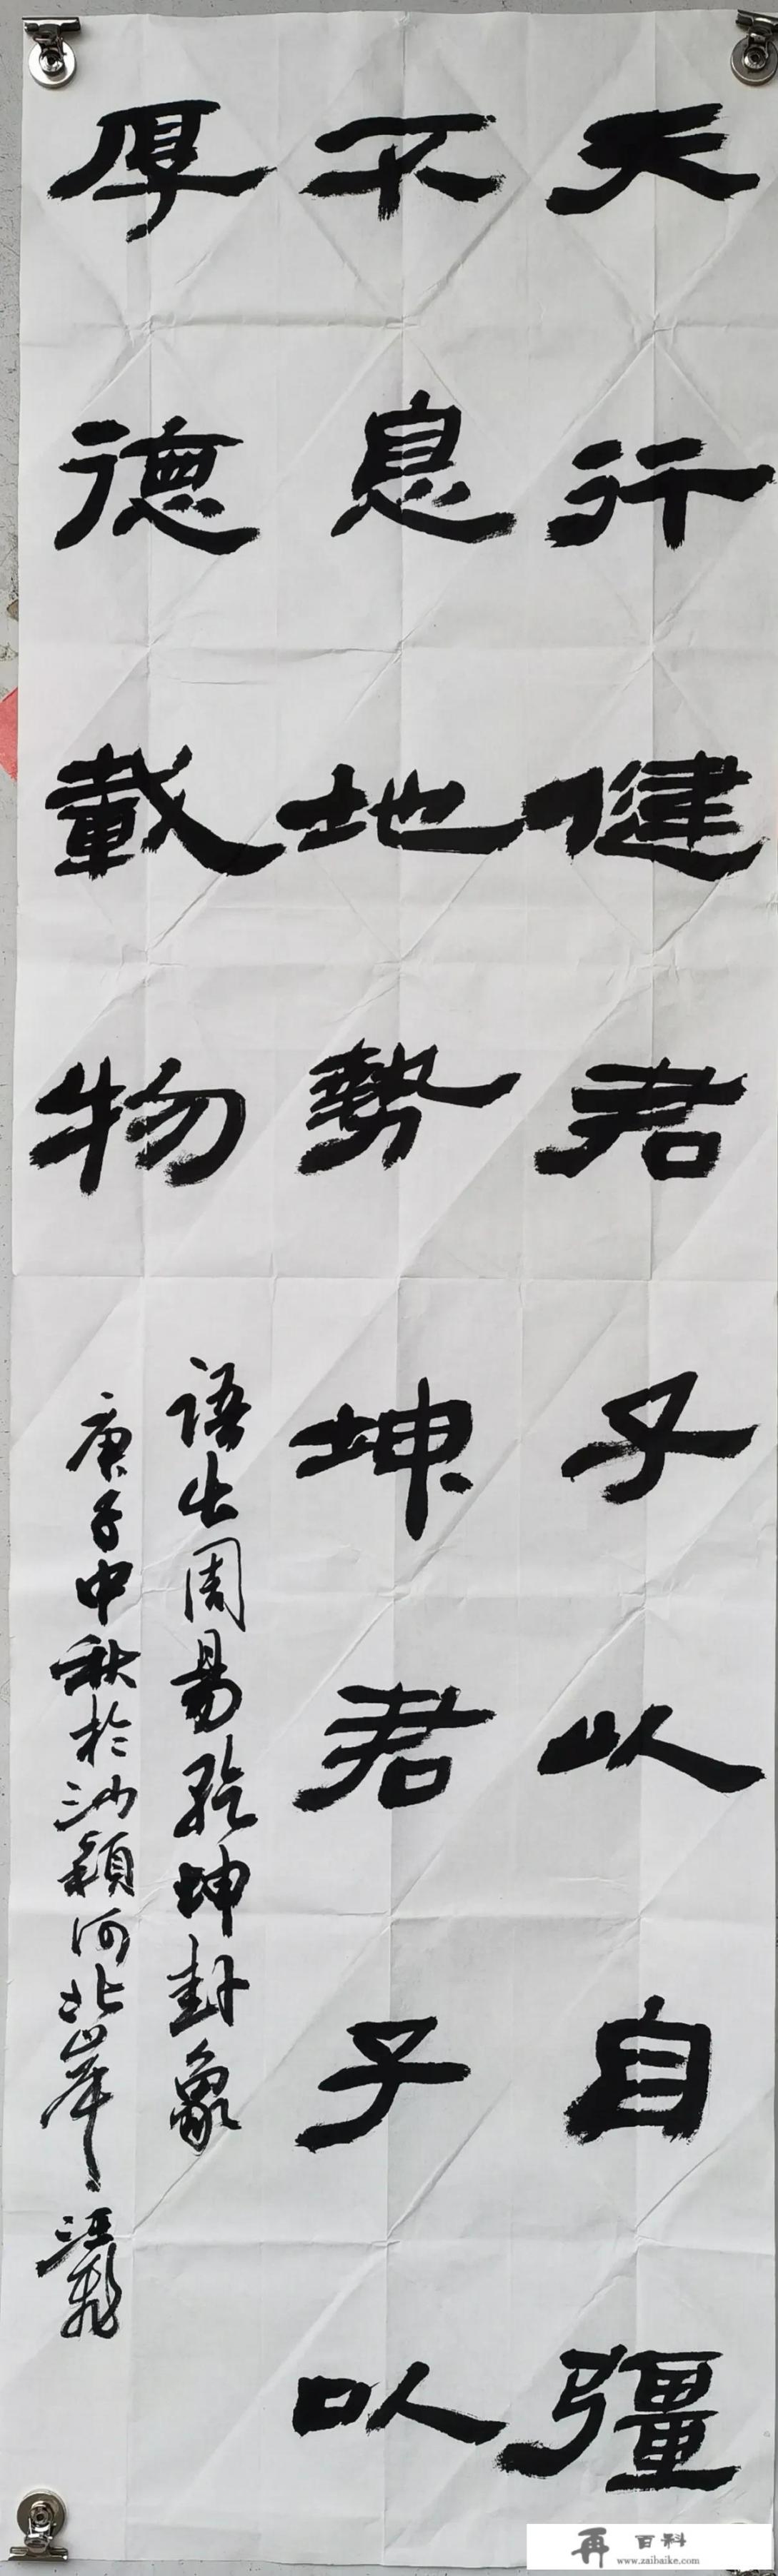 天行健君子以自彊
不息地勢坤君子以
厚德載物
語出周易乾坤卦象
庚子中秋於沙潁河北岸 汪飛
再百科
www.zaibaike.com